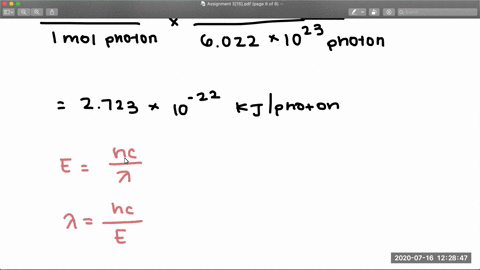 Assignment 3(10).pdf (page 8 of 8)
×
1 mol photon 6.022 × 10^23 photon
= 2.723 × 10^-22 KJ/photon
E = hc/λ
λ = hc/E
2020-07-16 12:28:47